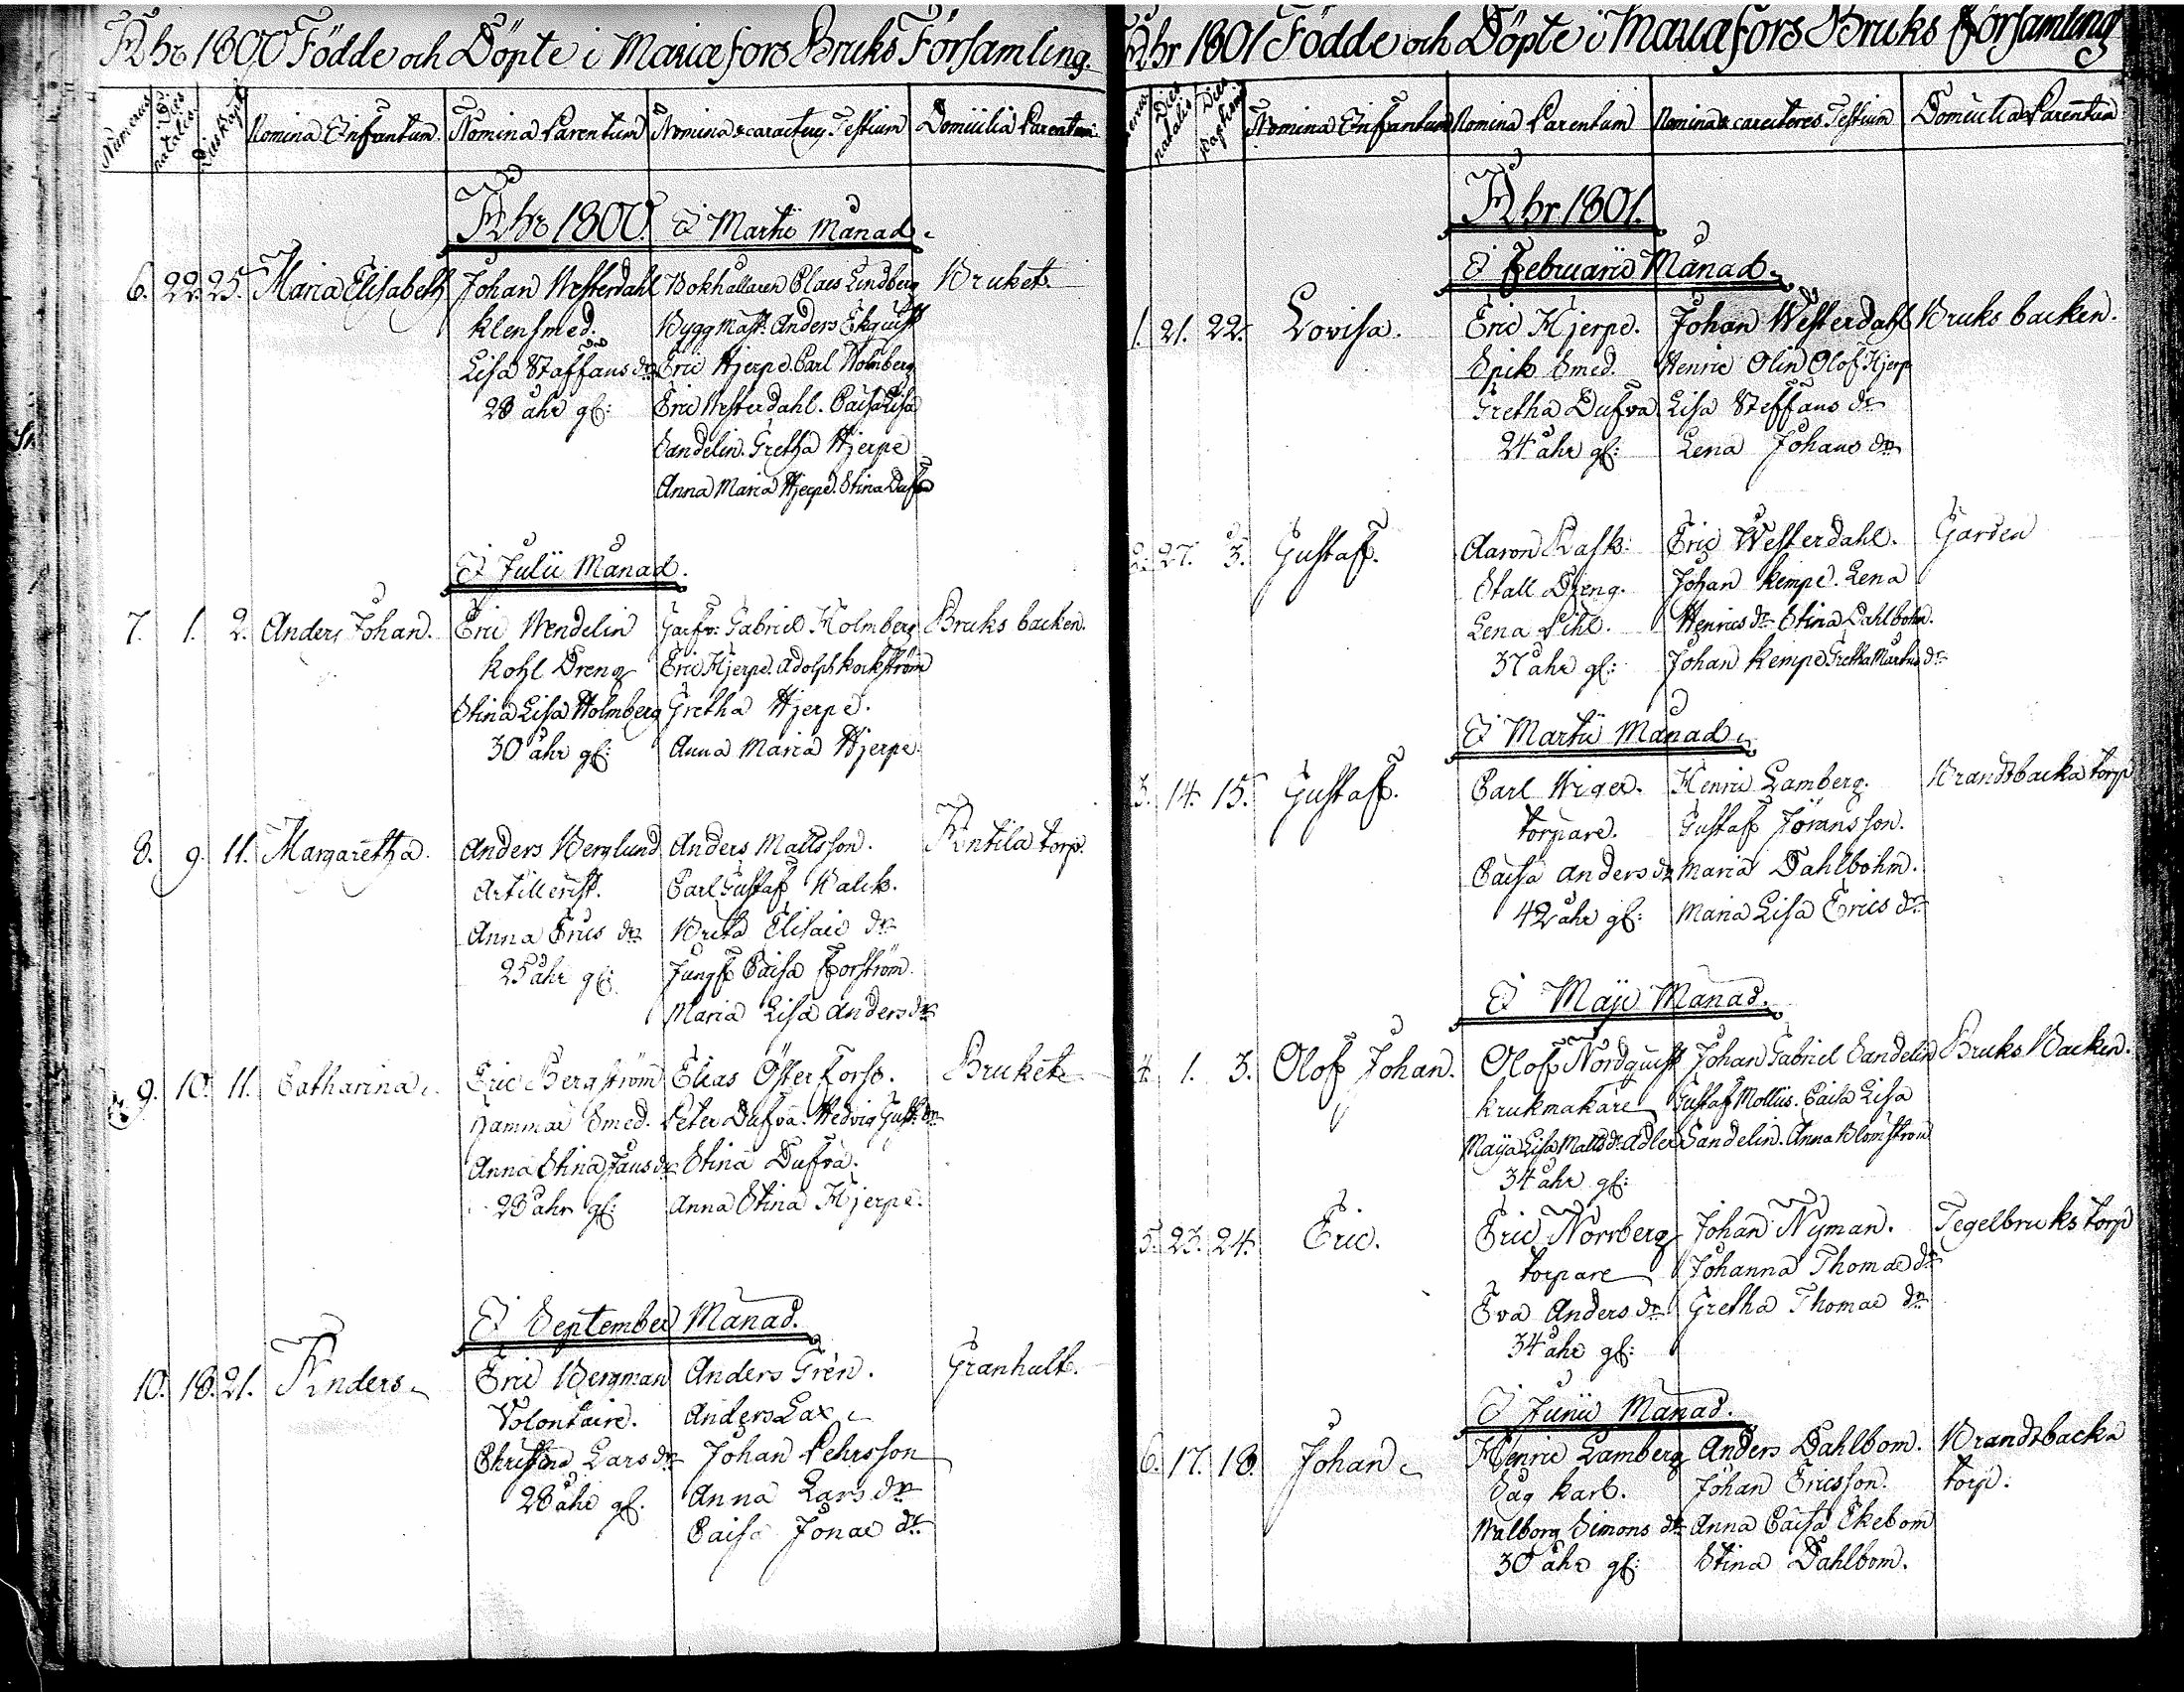 Åhr 1800 Födde och Döpte i Mariæfors Bruks Församling.
Numerus
Dies natalis
Dies Bapt
Nomina Infantum.
Nomina Parentum
Nomina & caracteres Testium
Domicilia Parentum
Åhr 1800. I Martii Månad.
6. 22. 25. Maria Elisabeth Johan Westerdahl Bokhållaren Claes Lindberg Bruket.
klensmed. Byggmäst: Anders Ekquist
Lisa Staffans dr Eric Hjerpe. Carl Holmberg
28 åhr gl: Eric Westerdahl. Caisa Lisa
Sandelin. Gretha Hjerpe
Anna Maria Hjerpe. Stina Dufva
I Julii Månad.
7. 1. 2. Anders Johan. Eric Wendelin Garfv: Gabriel Holmberg Bruks backen.
kohl Dreng Eric Hjerpe. Adolph kockström
Stina Lisa Holmberg Gretha Hjerpe.
30 åhr gl: Anna Maria Hjerpe.
8. 9. 11. Margaretha. Anders Berglund Anders Mattsson. Antila torp.
Artillerist. Carl Gustaf Balck.
Anna Erics dr Brita Elisaie dr
25 åhr gl: Jungf Caisa Forström.
Maria Lisa Anders dr
9. 10. 11. Catharina. Eric Bergström Elias Österfors. Bruket
Hammar Smed. Peter Dufva. Hedvig Gust: dr
Anna Stina Faus dr Stina Dufva.
28 åhr gl: Anna Stina Hjerpe.
I September Månad.
10. 18. 21. Anders Eric Bergman Anders Grén. Granhult.
Volontaire. Anders Lax
Christina Lars dr Johan Pehrsson
28 åhr gl. Anna Lars dr
Caisa Jonae dr
Åhr 1801 Födde och Döpte i Mariæfors Bruks församling
Dies natalis
Dies Baptismi
Nomina Infantum
Nomina Parentum
Nomina & caracteres Testium
Domicilia Parentum
Åhr 1801.
I Februarii Månad.
1. 21. 22. Lovisa. Eric Hjerpe. Johan Westerdahl Bruks backen.
Spik Smed. Henric Olin Olof Hjerp
Gretha Dufva. Lisa Steffans dr
24 åhr gl: Lena Johans dr
2. 27. 3. Gustaf. Aaron Rask. Eric Westerdahl. Gården
Stall Dreng. Johan kempe. Lena
Lena Pihl. Henrics dr Stina Dahlbohm.
37 åhr gl: Johan kempe Gretha Martins dr
I Martii Månad
3. 14. 15. Gustaf. Carl Wiger. Henric Lamberg. Brandsbacka torp
torpare. Gustaf Jöransson.
Caisa Anders dr Maria Dahlbohm.
42 åhr gl: Maria Lisa Erics dr
I Maji Månad.
4. 1. 3. Olof Johan. Olof Nordquist Johan Gabriel Sandelin Bruks Backen.
krukmakare Gustaf Molliis. Caisa Lisa
Maija Lisa Matts dr Adler Sandelin. Anna Blomström
34 åhr gl:
5. 23. 24. Eric. Eric Norrberg Johan Nyman. Tegelbruks torp
torpare Johanna Thomae dr
Eva Anders dr Gretha Thomae dr
34 åhr gl:
I Junii Månad.
6. 17. 18. Johan Henric Lamberg Anders Dahlbom. Brandsbacka
Såg karl. Johan Ericsson. torp.
Walborg Simons dr Anna Caisa Ekebom
30 åhr gl: Stina Dahlbom.